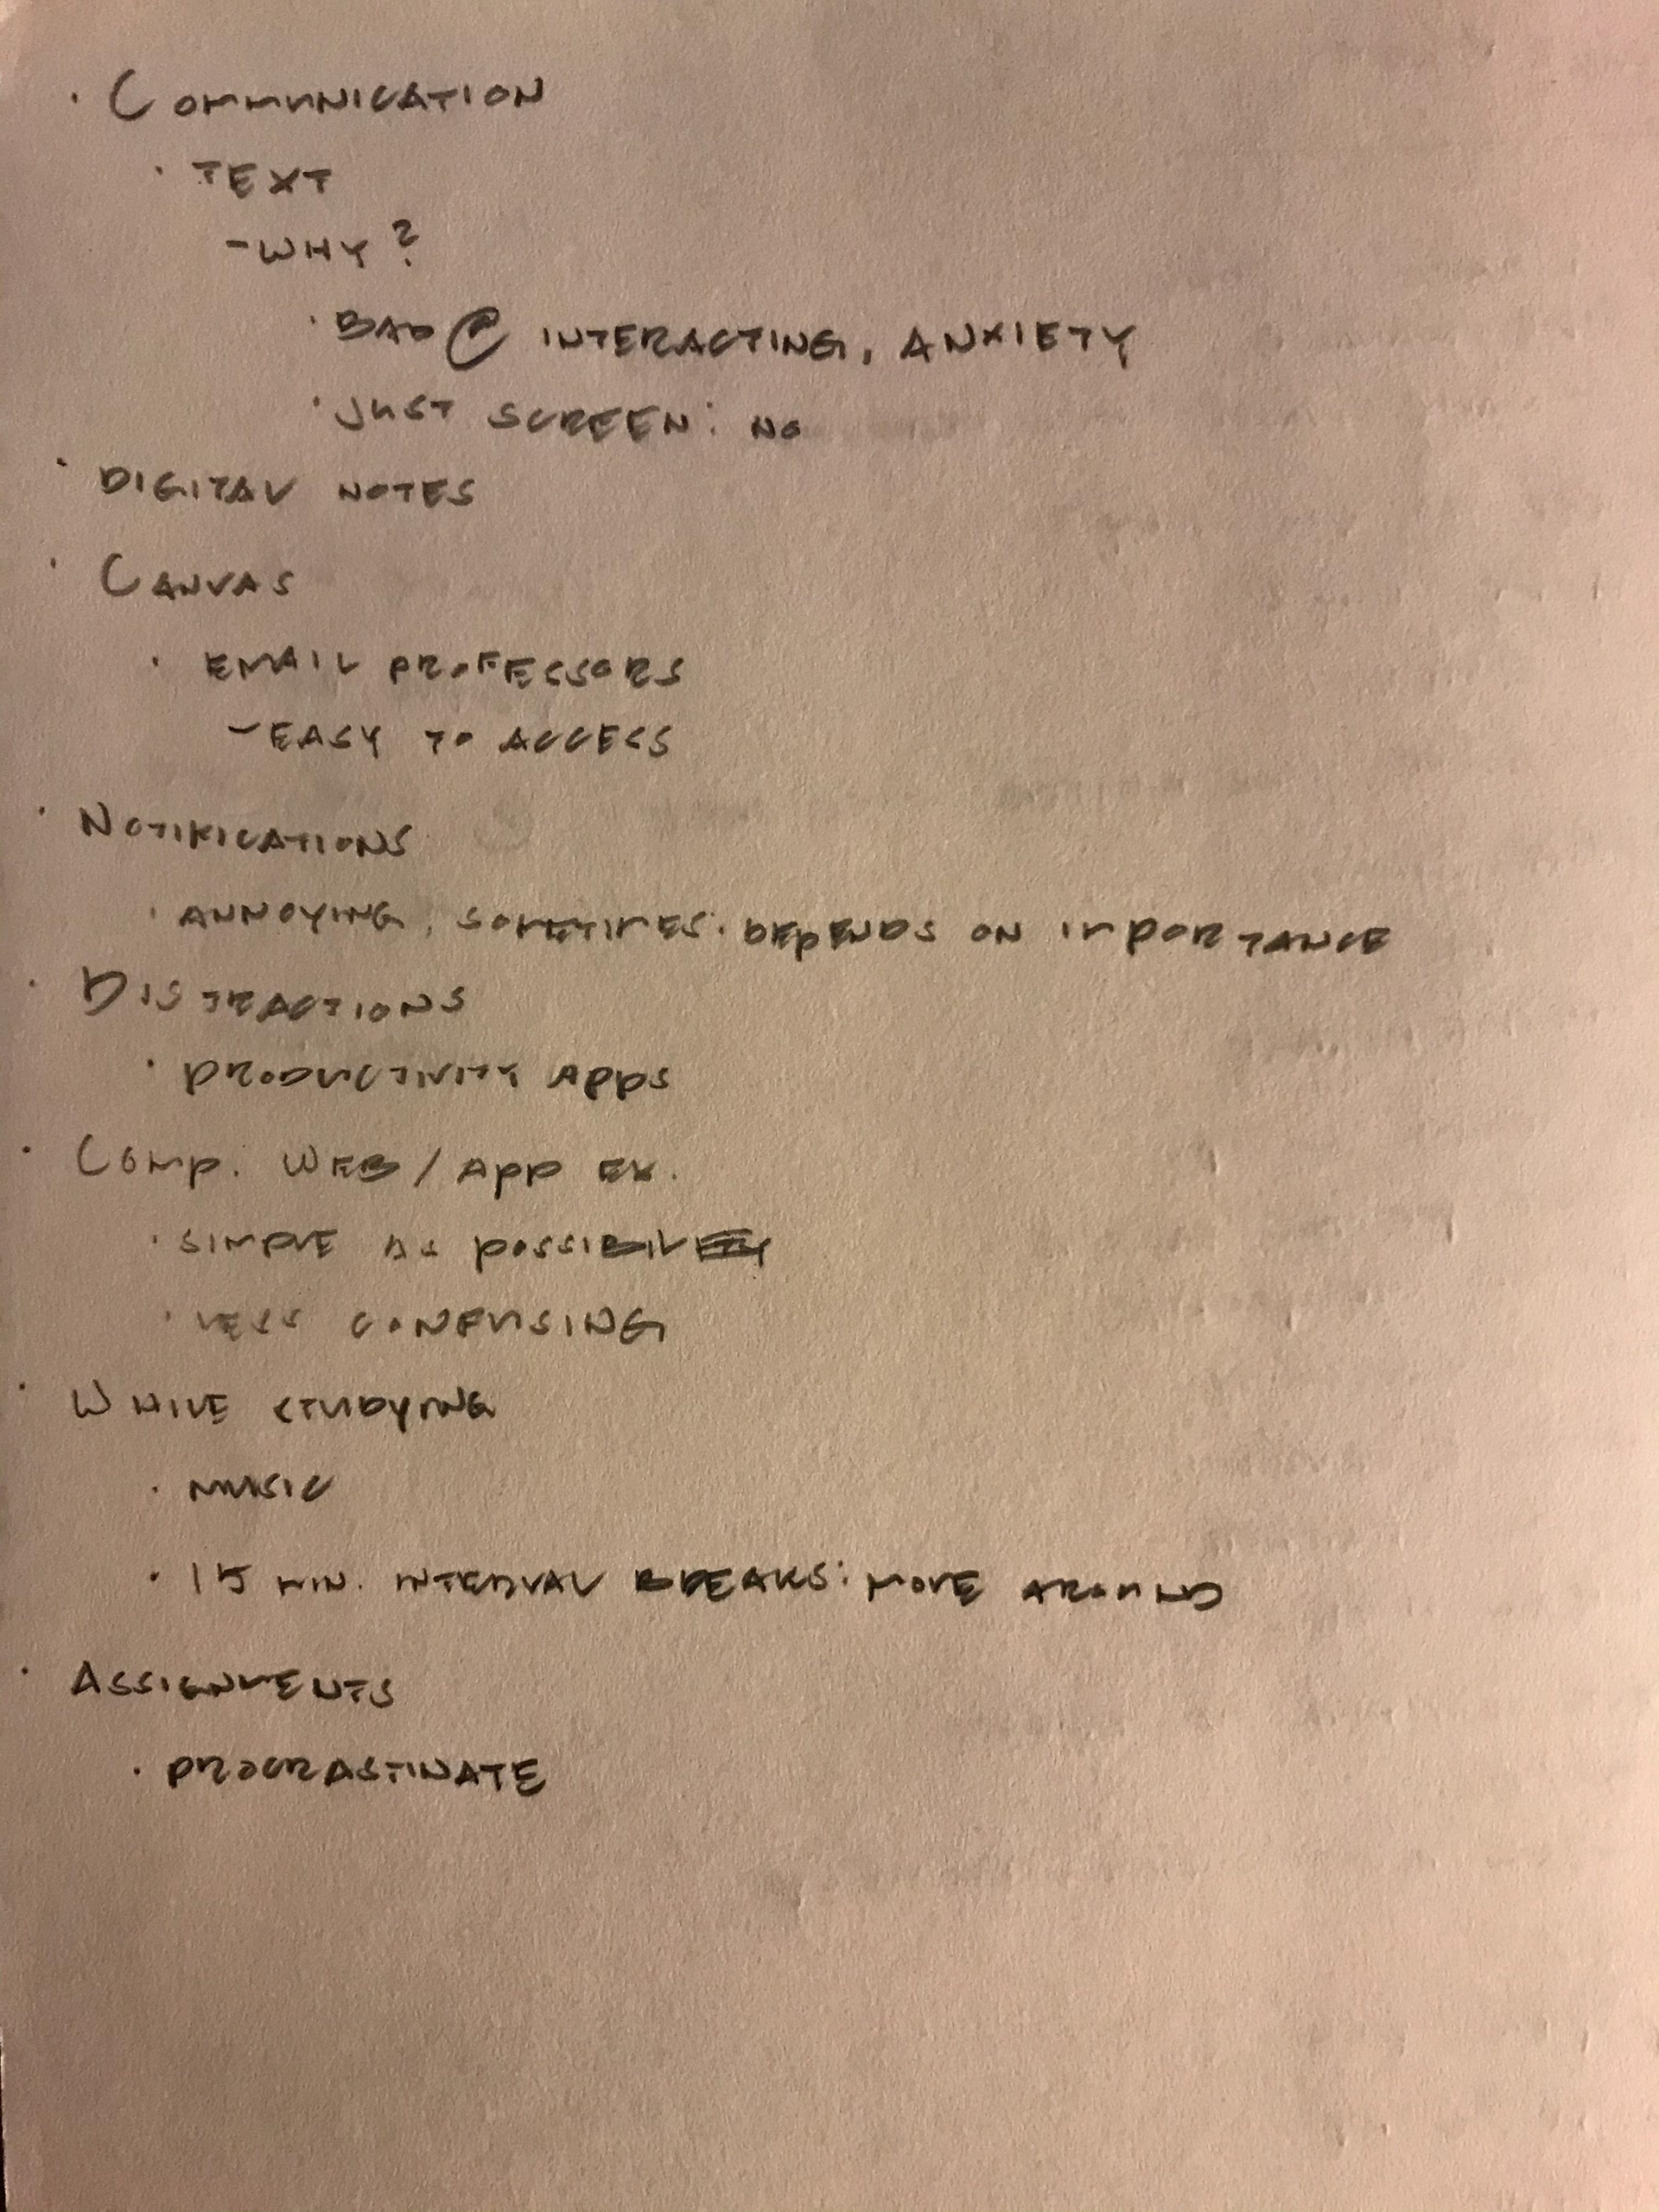 · COMMUNICATION
· TEXT
- WHY?
· BAD @ INTERACTING, ANXIETY
· JUST SCREEN: NO
· DIGITAL NOTES
· CANVAS
· EMAIL PROFESSORS
- EASY TO ACCESS
· NOTIFICATIONS
· ANNOYING, SOMETIMES: DEPENDS ON IMPORTANCE
· DISTRACTIONS
· PRODUCTIVITY APPS
· COMP. WEB/APP EX.
· SIMPLE AS POSSIBLE
· LESS CONFUSING
· WHILE STUDYING
· MUSIC
· 15 MIN. INTERVAL BREAKS: MOVE AROUND
· ASSIGNMENTS
· PROCRASTINATE